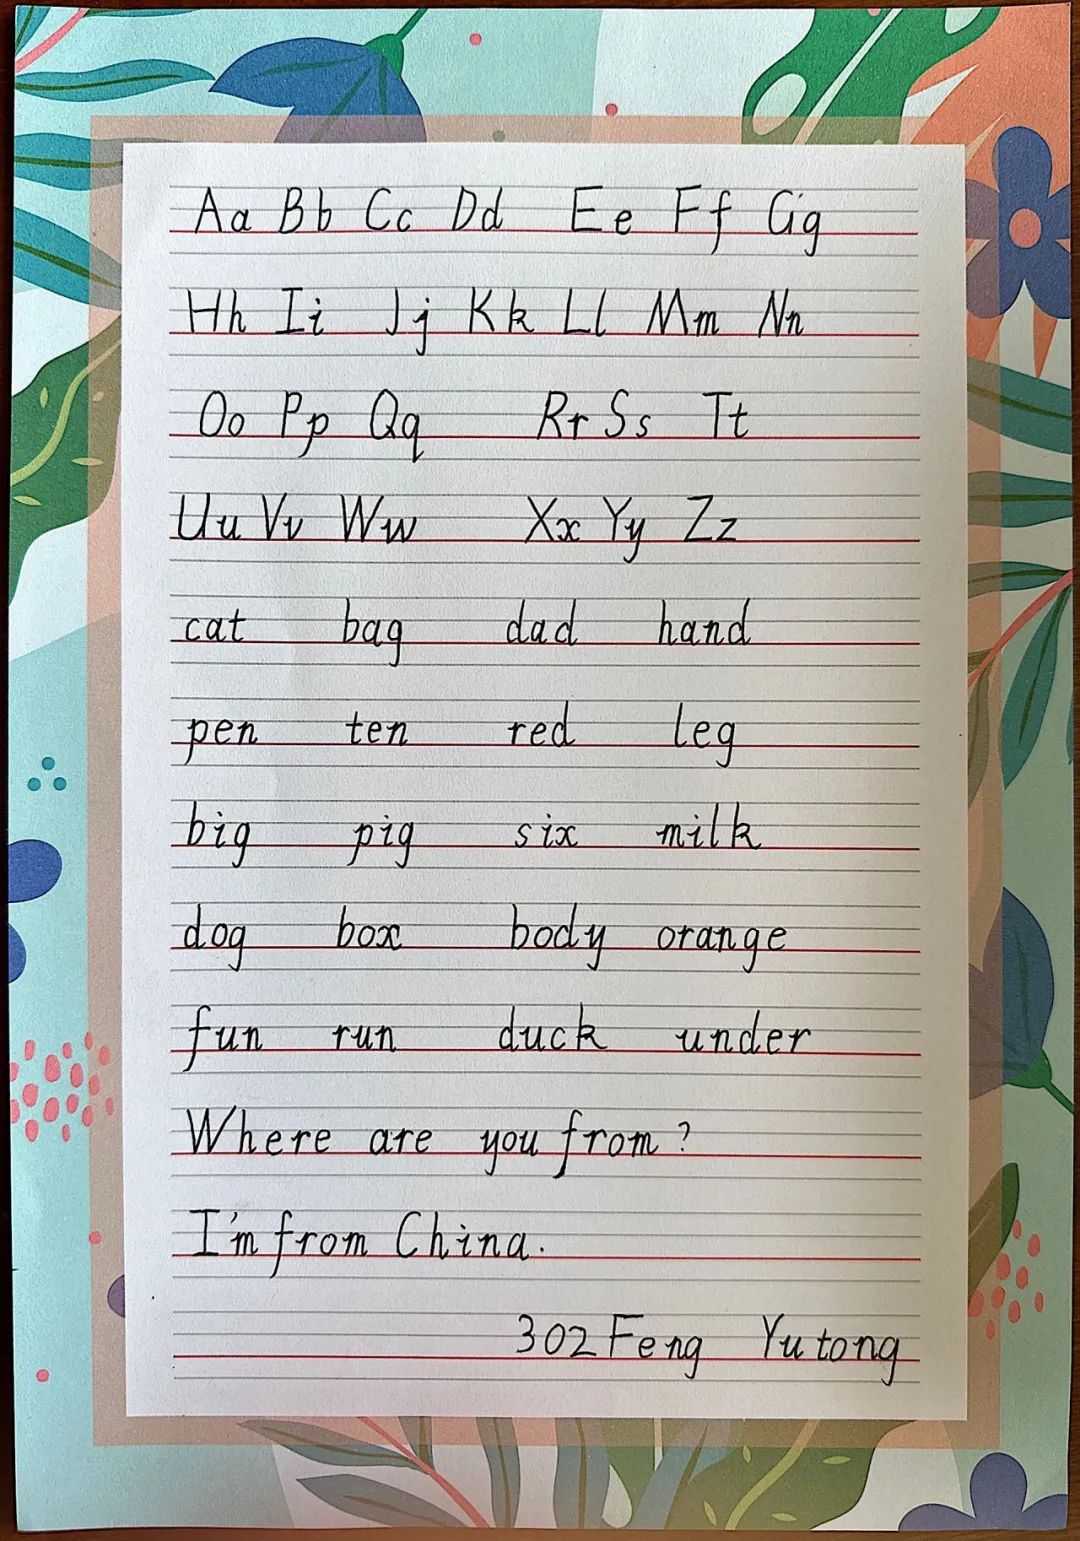 Aa Bb Cc Dd Ee Ff Gg
Hh Ii Jj Kk Ll Mm Nn
Oo Pp Qq Rr Ss Tt
Uu Vv Ww Xx Yy Zz
cat bag dad hand
pen ten red leg
big pig six milk
dog box body orange
fun run duck under
Where are you from?
I'm from China.
302 Feng Yutong